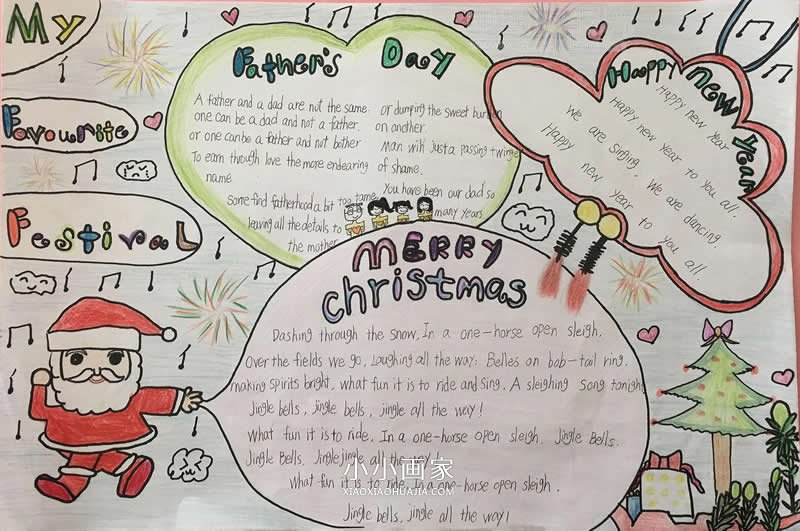 My
Favourite
Festival
Father's Day
A father and a dad are not the same.
one can be a dad and not a father.
or one can be a father and not bother
To earn though love the more endearing
name
Some find fatherhood a bit too tame,
leaving all the details to
the mother
or dumping the sweet burden
on another.
Man with just a passing twinge
of shame.
You have been our dad so
many years
Happy New Year
Happy new year
Happy new year to you all.
We are singing, We are dancing.
Happy new year to you all.
MERRY
christmas
Dashing through the snow, In a one-horse open sleigh.
Over the fields we go, Laughing all the way; Belles on bob-tail ring,
making spirits bright, what fun it is to ride and sing, A sleighing song tonight
Jingle bells, jingle bells, jingle all the way!
What fun it is to ride, In a one-horse open sleigh. Jingle Bells.
Jingle Bells, Jingle jingle all the way
What fun it is to ride, In a one-horse open sleigh.
Jingle bells, jingle all the way!
小小画家
XIAOXIAOHUAJIA.COM